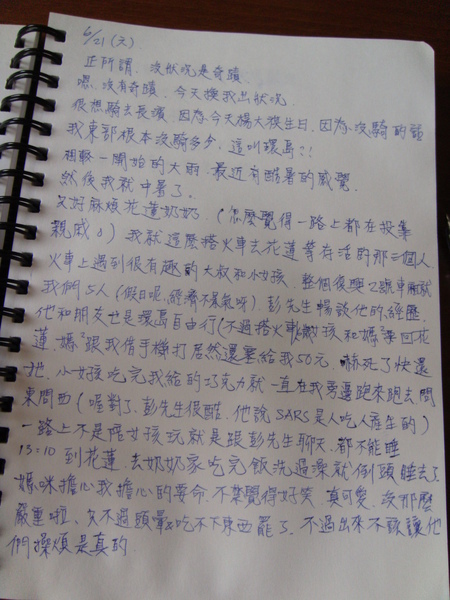 6/21(六)
正所謂、沒狀況是奇蹟
嗯、沒有奇蹟、今天換我出狀況
很想騎去長濱、因為今天楊大獉生日、因為沒騎的話
我東部根本沒騎多少、這叫環島?!
相較一開始的大雨、最近有酷暑的感覺
然後我就中暑了
只好麻煩花蓮奶奶。(怎麼覺得一路上都在投靠
親戚)我就這麼搭火車去花蓮等存活的那三個人
火車上遇到很有趣的大叔和小女孩、整個後與2號車廂就
我們5人(假日呢、經濟不景氣呀)彭先生暢談他的經歷
他和朋友也是環島自由行(不過搭火車)女孩和媽²要回花
蓮、媽²跟我借手機打居然還要給我50元、嚇死了快還
她、小女孩吃完我給的巧克力就一直在我旁邊跑來跑去問
東問西(喔對了、彭先生很酷、他說SARS是人吃人產生的)
一路上不是陪女孩玩就是跟彭先生聊天、都不能睡
15:10到花蓮、去奶奶家吃完飯洗過澡就倒頭睡去了
媽咪擔心我擔心的要命、不禁覺得好笑、真可愛、沒那麼
嚴重啦、只不過頭暈吃不下東西罷了、不過出來不該讓他
們操煩是真的